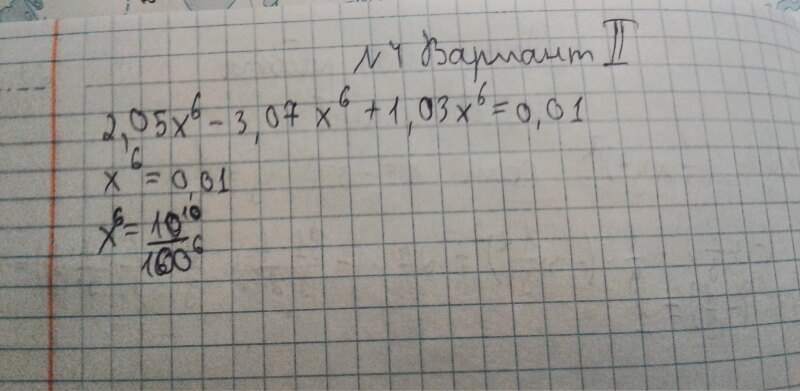 № 4 Вариант II
2,05x⁶ - 3,07 x⁶ + 1,03x⁶ = 0,01
x⁶ = 0,01
x⁶ = 10¹⁰/100⁶